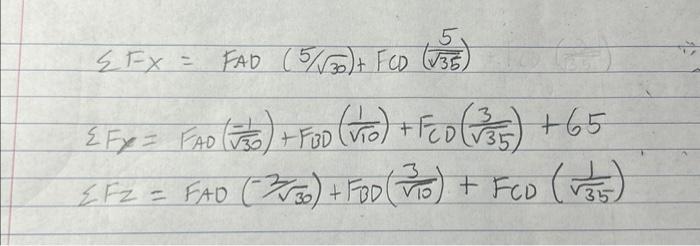 ΣFx = FAD (5/√30) + FCD (5/√35)
ΣFy = FAD (-1/√30) + FBD (1/√10) + FCD (3/√35) + 65
ΣFz = FAD (-2/√30) + FBD (3/√10) + FCD (1/√35)